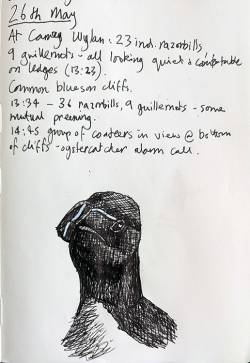 26th May
At Carreg Wylan: 23 ind. razorbills,
9 guillemots - all looking quiet & comfortable
on ledges (13:23).
Common blues on cliffs.
13:34 - 36 razorbills, 9 guillemots - some
mutual preening.
14:45 group of coasteers in view @ bottom
of cliffs - oystercatcher alarm call.